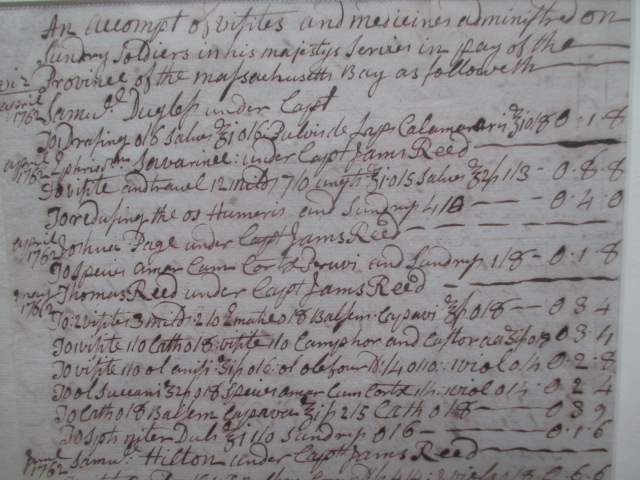 An accompt of visites and medicines administred on
Sundry Soldiers in his majestys servies in pay of the
viz Province of the massachusetts Bay as followeth
april 1762 Samuel Duglass under Capt
To Drasing 0/6 Salve ℥i 0/6 Calamanaris ℥i 0/8 0.1.8
april 8 1762 under Capt Jams Reed
To visite and travel 12 mild 7/0 ungt ℥i 0/5 Salve 1/3 0.8.8
To redusing the os Humeris and Sundrys 4/0 0.4.0
april 1762 Joshua Page under Capt Jams Reed
To Speies amar Cum Cortx Peruvi and Sundrys 1/8 0.1.8
may 1762 Thomas Reed under Capt Jams Reed
To 2 visites 3 mild 2/0 0/8 Balsem Capavi 0/8 0 3 4
To visite 1/0 Cath 0/8 visite 1/0 Camphor and Castor 0 3.4
To visite 1/0 ol anisi 0/6 viol 0/4 0.2.8
To ol Succani 0/8 Speies amar Cum Cortx 1/4 viol 0/4 0.2 4
To Cath 0/8 Balsem Capavia 2/5 Cath 0/8 0 3 9
To Sph niter Dulc ℥i 1/0 Sundrys 0/6 0.1.6
June 1762 Samul Hilton under Capt Jams Reed
0.6.6